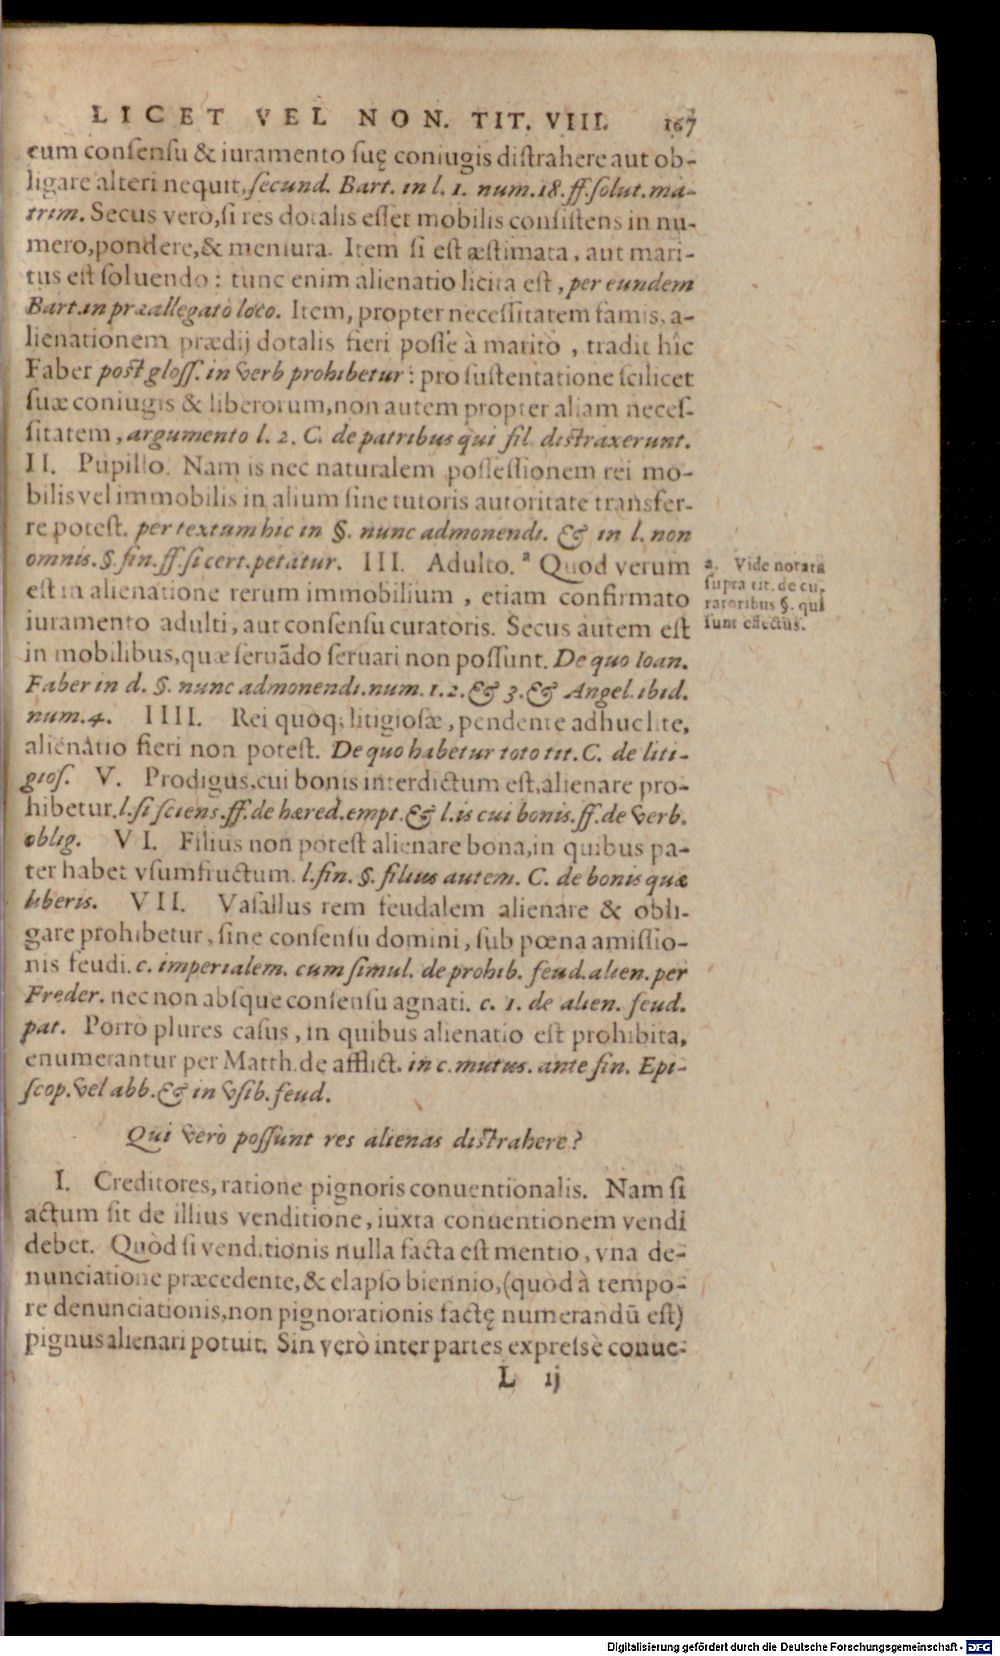 LICET VEL NON. TIT. VIII. 167
cum consensu & iuramento suę coniugis distrahere aut ob-
ligare alteri nequit, secund. Bart. in l. 1. num. 18. ff. solut. ma-
trim. Secus vero, si res dotalis esset mobilis consistens in nu-
mero, pondere, & mensura. Item si est æstimata, aut mari-
tus est soluendo: tunc enim alienatio licita est, per eundem
Bart. in præallegato loco. Item, propter necessitatem famis, a-
lienationem prædij dotalis fieri posse à maritò, tradit hîc
Faber post gloss. in verb prohibetur: pro sustentatione scilicet
suæ coniugis & liberorum, non autem propter aliam neces-
sitatem, argumento l. 2. C. de patribus qui fil. distraxerunt.
II. Pupillo. Nam is nec naturalem possessionem rei mo-
bilis vel immobilis in alium sine tutoris autoritate transfer-
re potest. per textum hic in §. nunc admonendi. & in l. non
omnis. §. fin. ff. si cert. petatur. III. Adulto.ª Quod verum
est in alienatione rerum immobilium, etiam confirmato
iuramento adulti, aut consensu curatoris. Secus autem est
in mobilibus, quæ seruãdo seruari non possunt. De quo Ioan.
Faber in d. §. nunc admonendi. num. 1. 2. & 3. & Angel. ibid.
num. 4. IIII. Rei quoq; litigiosæ, pendente adhuc lite,
alienatio fieri non potest. De quo habetur toto tit. C. de liti-
gios. V. Prodigus, cui bonis interdictum est, alienare pro-
hibetur. l. si sciens. ff. de hæred. empt. & l. is cui bonis. ff. de verb.
oblig. VI. Filius non potest alienare bona, in quibus pa-
ter habet vsumfructum. l. fin. §. filius autem. C. de bonis quæ
liberis. VII. Vasallus rem feudalem alienare & obli-
gare prohibetur, sine consensu domini, sub pœna amissio-
nis feudi. c. imperialem. cum simul. de prohib. feud. alien. per
Freder. nec non absque consensu agnati. c. 1. de alien. feud.
pat. Porrò plures casus, in quibus alienatio est prohibita,
enumerantur per Matth. de afflict. in c. mutus. ante fin. Epi-
scop. vel abb. & in vsib. feud.
a. Vide notata
supra tit. de cu-
ratoribus §. qui
sunt effectus.
Qui verò possunt res alienas distrahere?
I. Creditores, ratione pignoris conuentionalis. Nam si
actum sit de illius venditione, iuxta conuentionem vendi
debet. Quòd si venditionis nulla facta est mentio, vna de-
nunciatione præcedente, & elapso biennio, (quòd à tempo-
re denunciationis, non pignorationis factę numerandũ est)
pignus alienari potuit. Sin verò inter partes expresse conue-
L ij
Digitalisierung gefördert durch die Deutsche Forschungsgemeinschaft - DFG